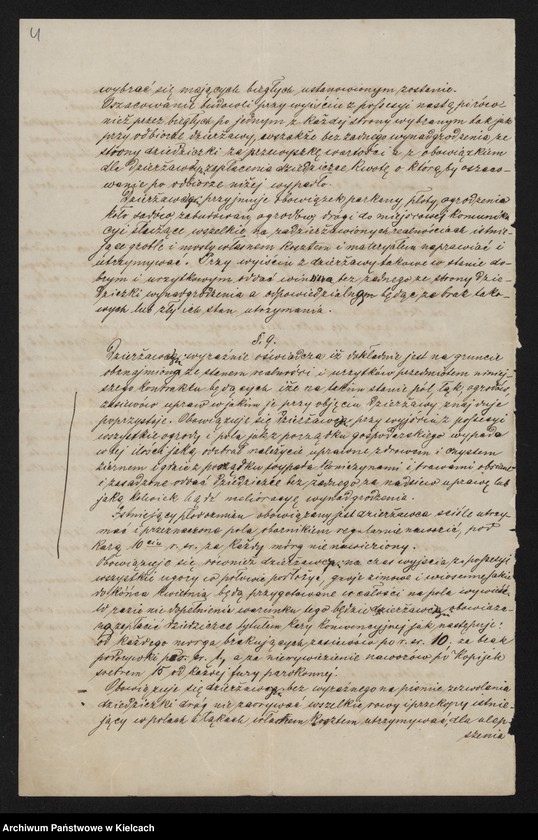 4
wybrać się mających biegłych ustanowionym zostanie.
Oszacowanie budowli przy wyjściu z possesyi nastąpi rów-
nież przez biegłych po jednym z każdej strony wybranym tak jak
przy odbiorze dzierżawy, wszakże bez żadnego wynadgrodzenia ze
strony dziedziczki za przewyżkę wartości a z obowiązkiem
dla Dzierżawcy zapłacenia dziedziczce kwotę o którą by oszaco-
wanie po odbiorze niżej wypadło.
Dzierżawca przyjmuje obowiązek parkany płoty ogrodzenia
koło sadów, zabudowań, ogrodów, drogi do miejscowej komunika
cyi służące wszelkie na zadzierżawionych realnościach istnie-
jące groble i mosty własnem kosztem i materyałem naprawiać i
utrzymywać. Przy wyjściu z dzierżawy takowe w stanie do-
brym i użytkowym oddać winna bez żadnego ze strony Dzie-
dziczki wynadgrodzenia a odpowiedzialnym będąc za brak tako-
wych lub zły ich stan utrzymania.
§. 9.
Dzierżawca wyraźnie oświadcza iż dokładnie jest na gruncie
obznajmiona ze stanem realności i użytków przedmiotem niniej-
szego kontraktu będących, iże na takim stanie pól, łąk, ogrodów,
zasiewów upraw w jakim je przy objęciu Dzierżawy znajduje
poprzystaje. Obowiązuje się Dzierżawca przy wyjściu z possesyi
wszystkie ogrody i pola jak z porządku gospodarskiego wypada
w tej ilości jaką odebrał należycie uprawne zdrowem i czystem
ziarnem i gdzie z porządku wypada koniczynami i trawami obsiane
i zasadzone oddać dziedziczce bez żadnego za nadsiew uprawę lub
jaką kolwiek bądź melioracyę wynadgrodzenia.
Istniejący płodozmian obowiązany jest dzierżawca ściśle utrzy-
mać i przeznaczone pola obornikiem regularnie nawozić, pod
karą 10ciu r. sr. za każdy mórg nienawieziony.
Obowiązuje się również dzierżawca, na czas wyjścia z possesyi
wszystkie ugory w połowie podłożyć, gnoje zimowe i wiosenne jakie
do końca kwietnia będą przygotowane w całości na pola wywieść,
w razie nie dopełnienia warunku tego będzie dzierżawca obowiąza-
na zapłacić dziedziczce tytułem kary konwencyjnej jak następuje:
od każdego morga brakujących zasiewów po r. sr. 10. za brak
podorywki po r. sr. 1, a za niewywiezienie nawozów po kopijek
srebrem 15 od każdej fury parokonnej.
Obowiązuje się dzierżawca bez wyraźnego na piśmie zezwolenia
dziedziczki dróg nie zaorywać wszelkie rowy i przekopy istnie-
jący w polach i łąkach własnem kosztem utrzymywać, dla ulep-
szenia
Archiwum Państwowe w Kielcach